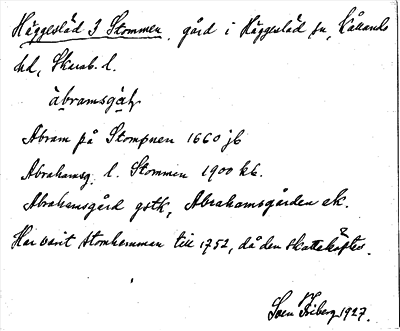 Häggesled 3 Stommen, gård i Häggesled sn, Kållands
hd, Skarab. l.
åbramsgå̤ḷn
Abram på Stompnen 1660 jb
Abrahamsg. l. Stommen 1900 kb.
Abrahamsgård gstk, Abrahamsgården ek.
Har varit stomhemman till 1752, då den skatteköptes.
Sven Friberg 1927.